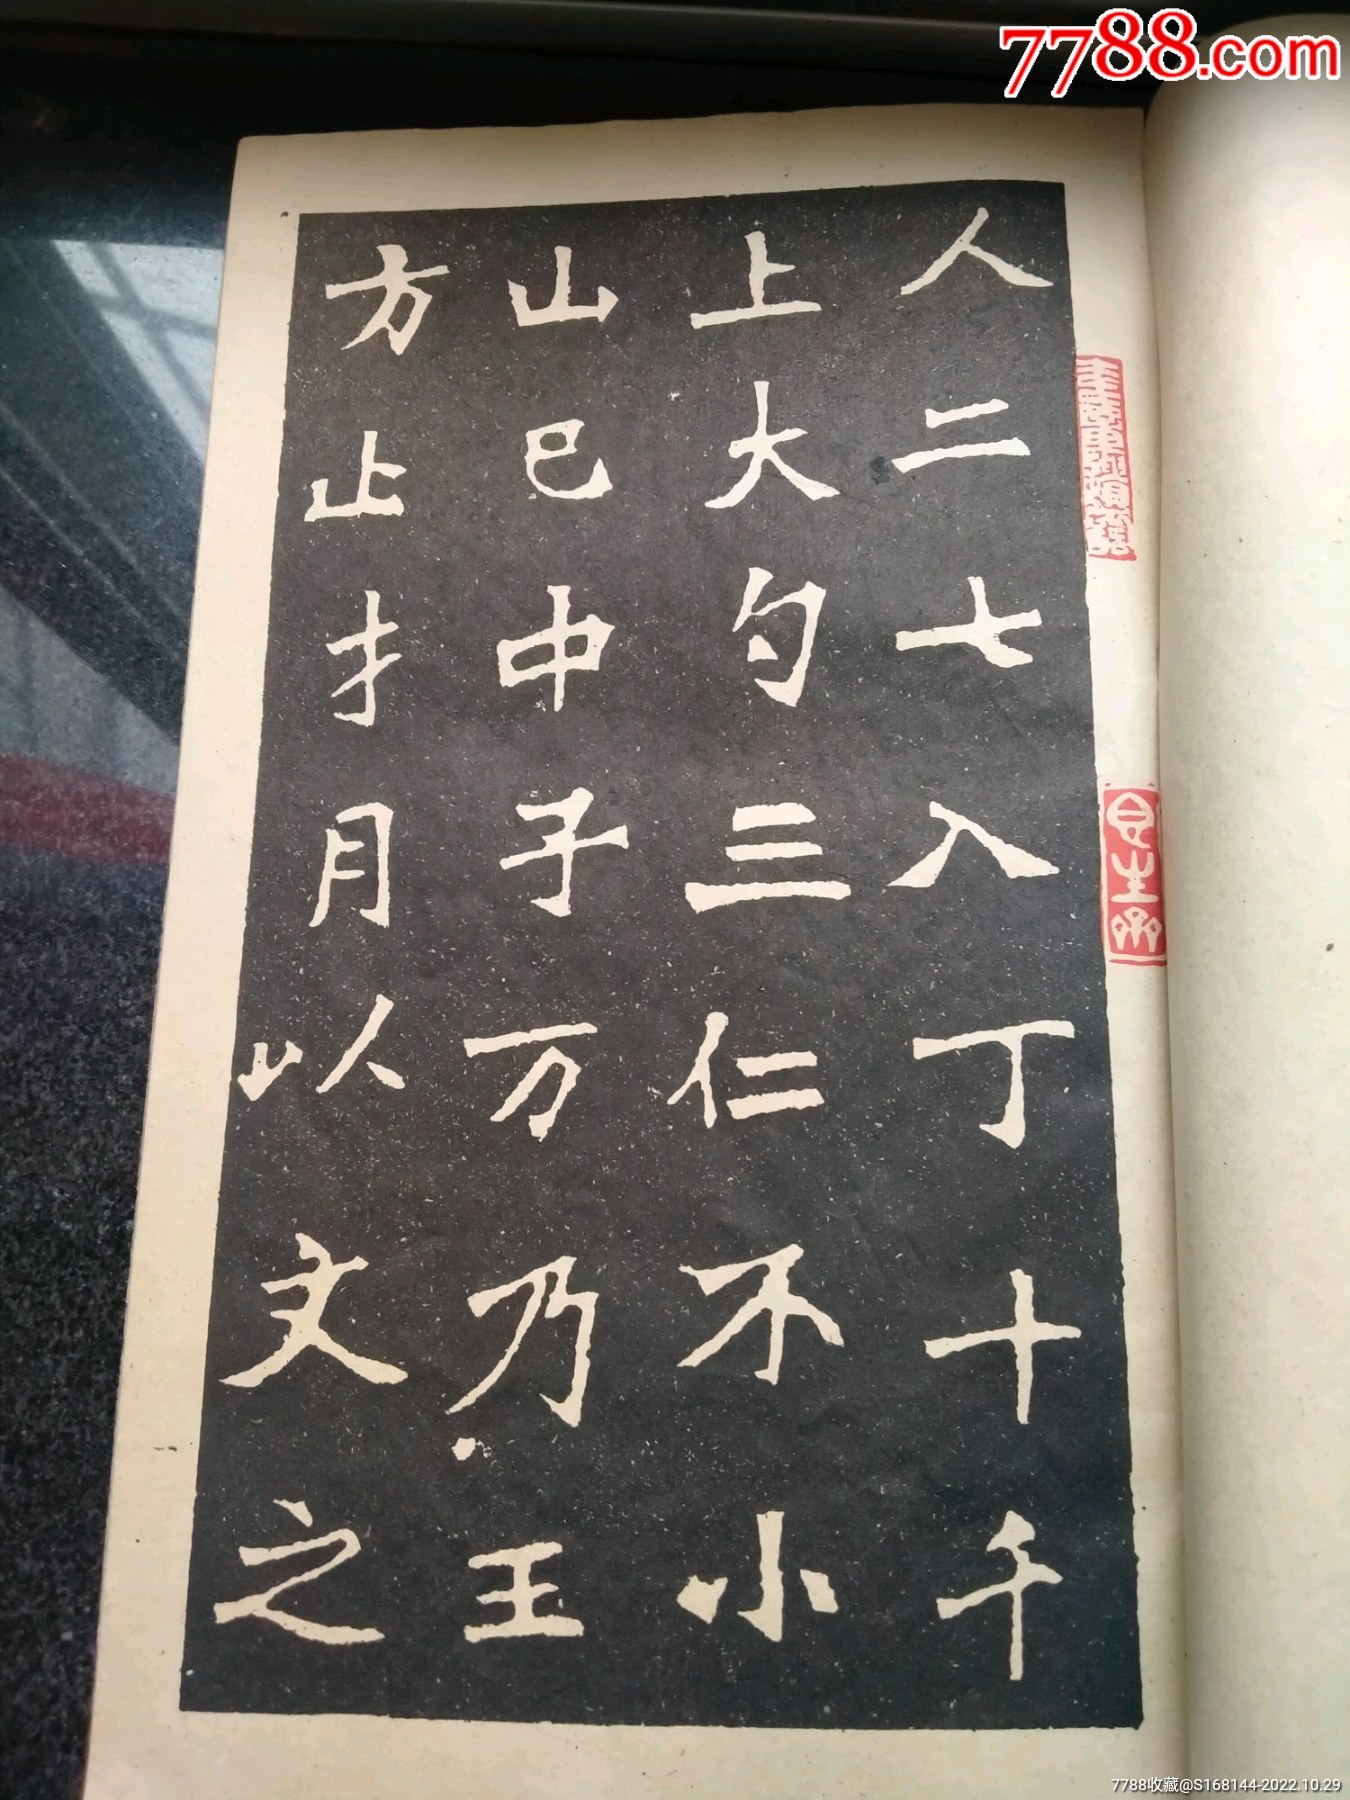 7788.com
人二七入丁十千
上大勺三仁不小
山巳中子万乃王
方止才月以文之
7788收藏@S168144-2022.10.29